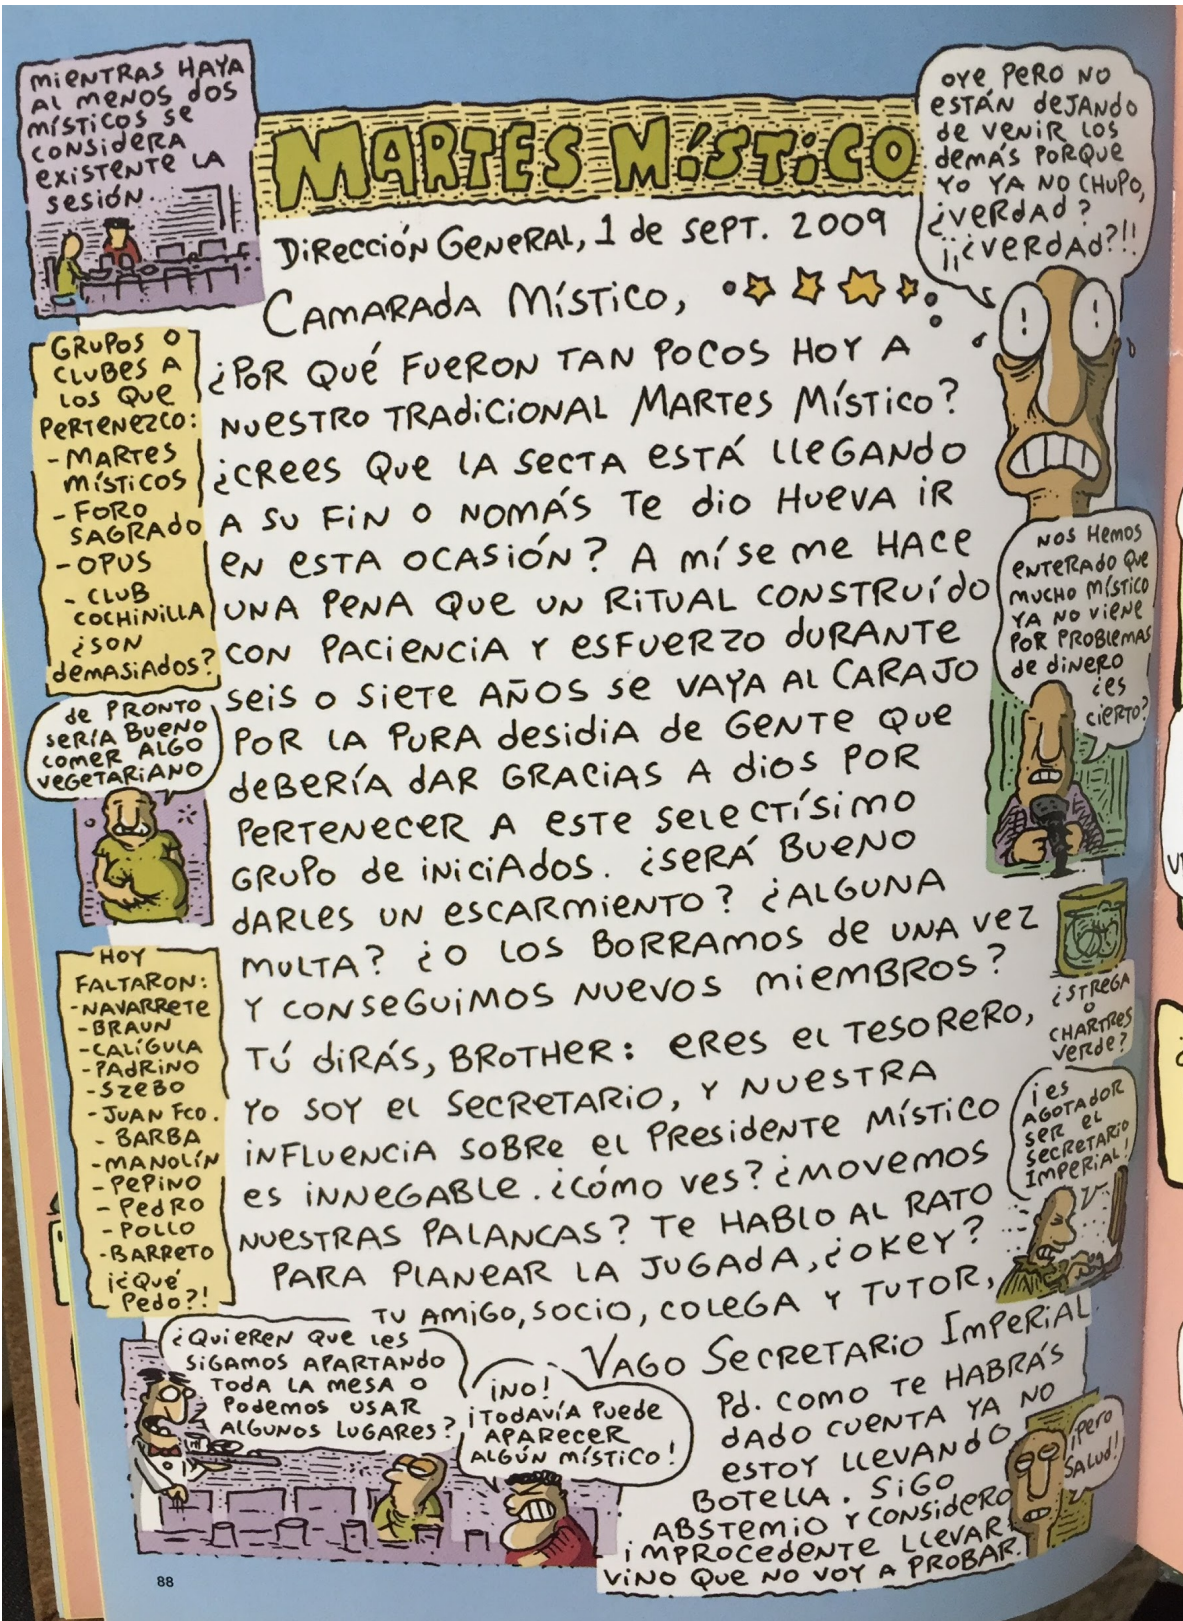 MIENTRAS HAYA
AL MENOS DOS
MÍSTICOS SE
CONSIDERA
EXISTENTE LA
SESIÓN.
MARTES MÍSTICO
OYE PERO NO
ESTÁN DEJANDO
DE VENIR LOS
DEMÁS PORQUE
YO YA NO CHUPO,
¿VERDAD?
¡¡¿VERDAD?!!
DIRECCIÓN GENERAL, 1 DE SEPT. 2009
CAMARADA MÍSTICO,
¿POR QUÉ FUERON TAN POCOS HOY A
NUESTRO TRADICIONAL MARTES MÍSTICO?
¿CREES QUE LA SECTA ESTÁ LLEGANDO
A SU FIN O NOMÁS TE DIO HUEVA IR
EN ESTA OCASIÓN? A MÍ SE ME HACE
UNA PENA QUE UN RITUAL CONSTRUÍDO
CON PACIENCIA Y ESFUERZO DURANTE
SEIS O SIETE AÑOS SE VAYA AL CARAJO
POR LA PURA DESIDIA DE GENTE QUE
DEBERÍA DAR GRACIAS A DIOS POR
PERTENECER A ESTE SELECTÍSIMO
GRUPO DE INICIADOS. ¿SERÁ BUENO
DARLES UN ESCARMIENTO? ¿ALGUNA
MULTA? ¿O LOS BORRAMOS DE UNA VEZ
Y CONSEGUIMOS NUEVOS MIEMBROS?
TÚ DIRÁS, BROTHER: ERES EL TESORERO,
YO SOY EL SECRETARIO, Y NUESTRA
INFLUENCIA SOBRE EL PRESIDENTE MÍSTICO
ES INNEGABLE. ¿CÓMO VES? ¿MOVEMOS
NUESTRAS PALANCAS? TE HABLO AL RATO
PARA PLANEAR LA JUGADA, ¿OKEY?
TU AMIGO, SOCIO, COLEGA Y TUTOR,
VAGO SECRETARIO IMPERIAL
PD. COMO TE HABRÁS
DADO CUENTA YA NO
ESTOY LLEVANDO
BOTELLA. SIGO
ABSTEMIO Y CONSIDERO
IMPROCEDENTE LLEVAR
VINO QUE NO VOY A PROBAR.
GRUPOS O
CLUBES A
LOS QUE
PERTENEZCO:
- MARTES
MÍSTICOS
- FORO
SAGRADO
- OPUS
- CLUB
COCHINILLA
¿SON
DEMASIADOS?
DE PRONTO
SERÍA BUENO
COMER ALGO
VEGETARIANO
HOY
FALTARON:
- NAVARRETE
- BRAUN
- CALÍGULA
- PADRINO
- SZEBO
- JUAN FCO.
- BARBA
- MANOLÍN
- PEPINO
- PEDRO
- POLLO
- BARRETO
¡¿QUÉ
PEDO?!
NOS HEMOS
ENTERADO QUE
MUCHO MÍSTICO
YA NO VIENE
POR PROBLEMAS
DE DINERO
¿ES
CIERTO?
¿STREGA
O
CHARTRES
VERDE?
¡ES
AGOTADOR
SER EL
SECRETARIO
IMPERIAL!
¿QUIEREN QUE LES
SIGAMOS APARTANDO
TODA LA MESA O
PODEMOS USAR
ALGUNOS LUGARES?
¡NO!
¡TODAVÍA PUEDE
APARECER
ALGÚN MÍSTICO!
¡PERO
SALUD!
88